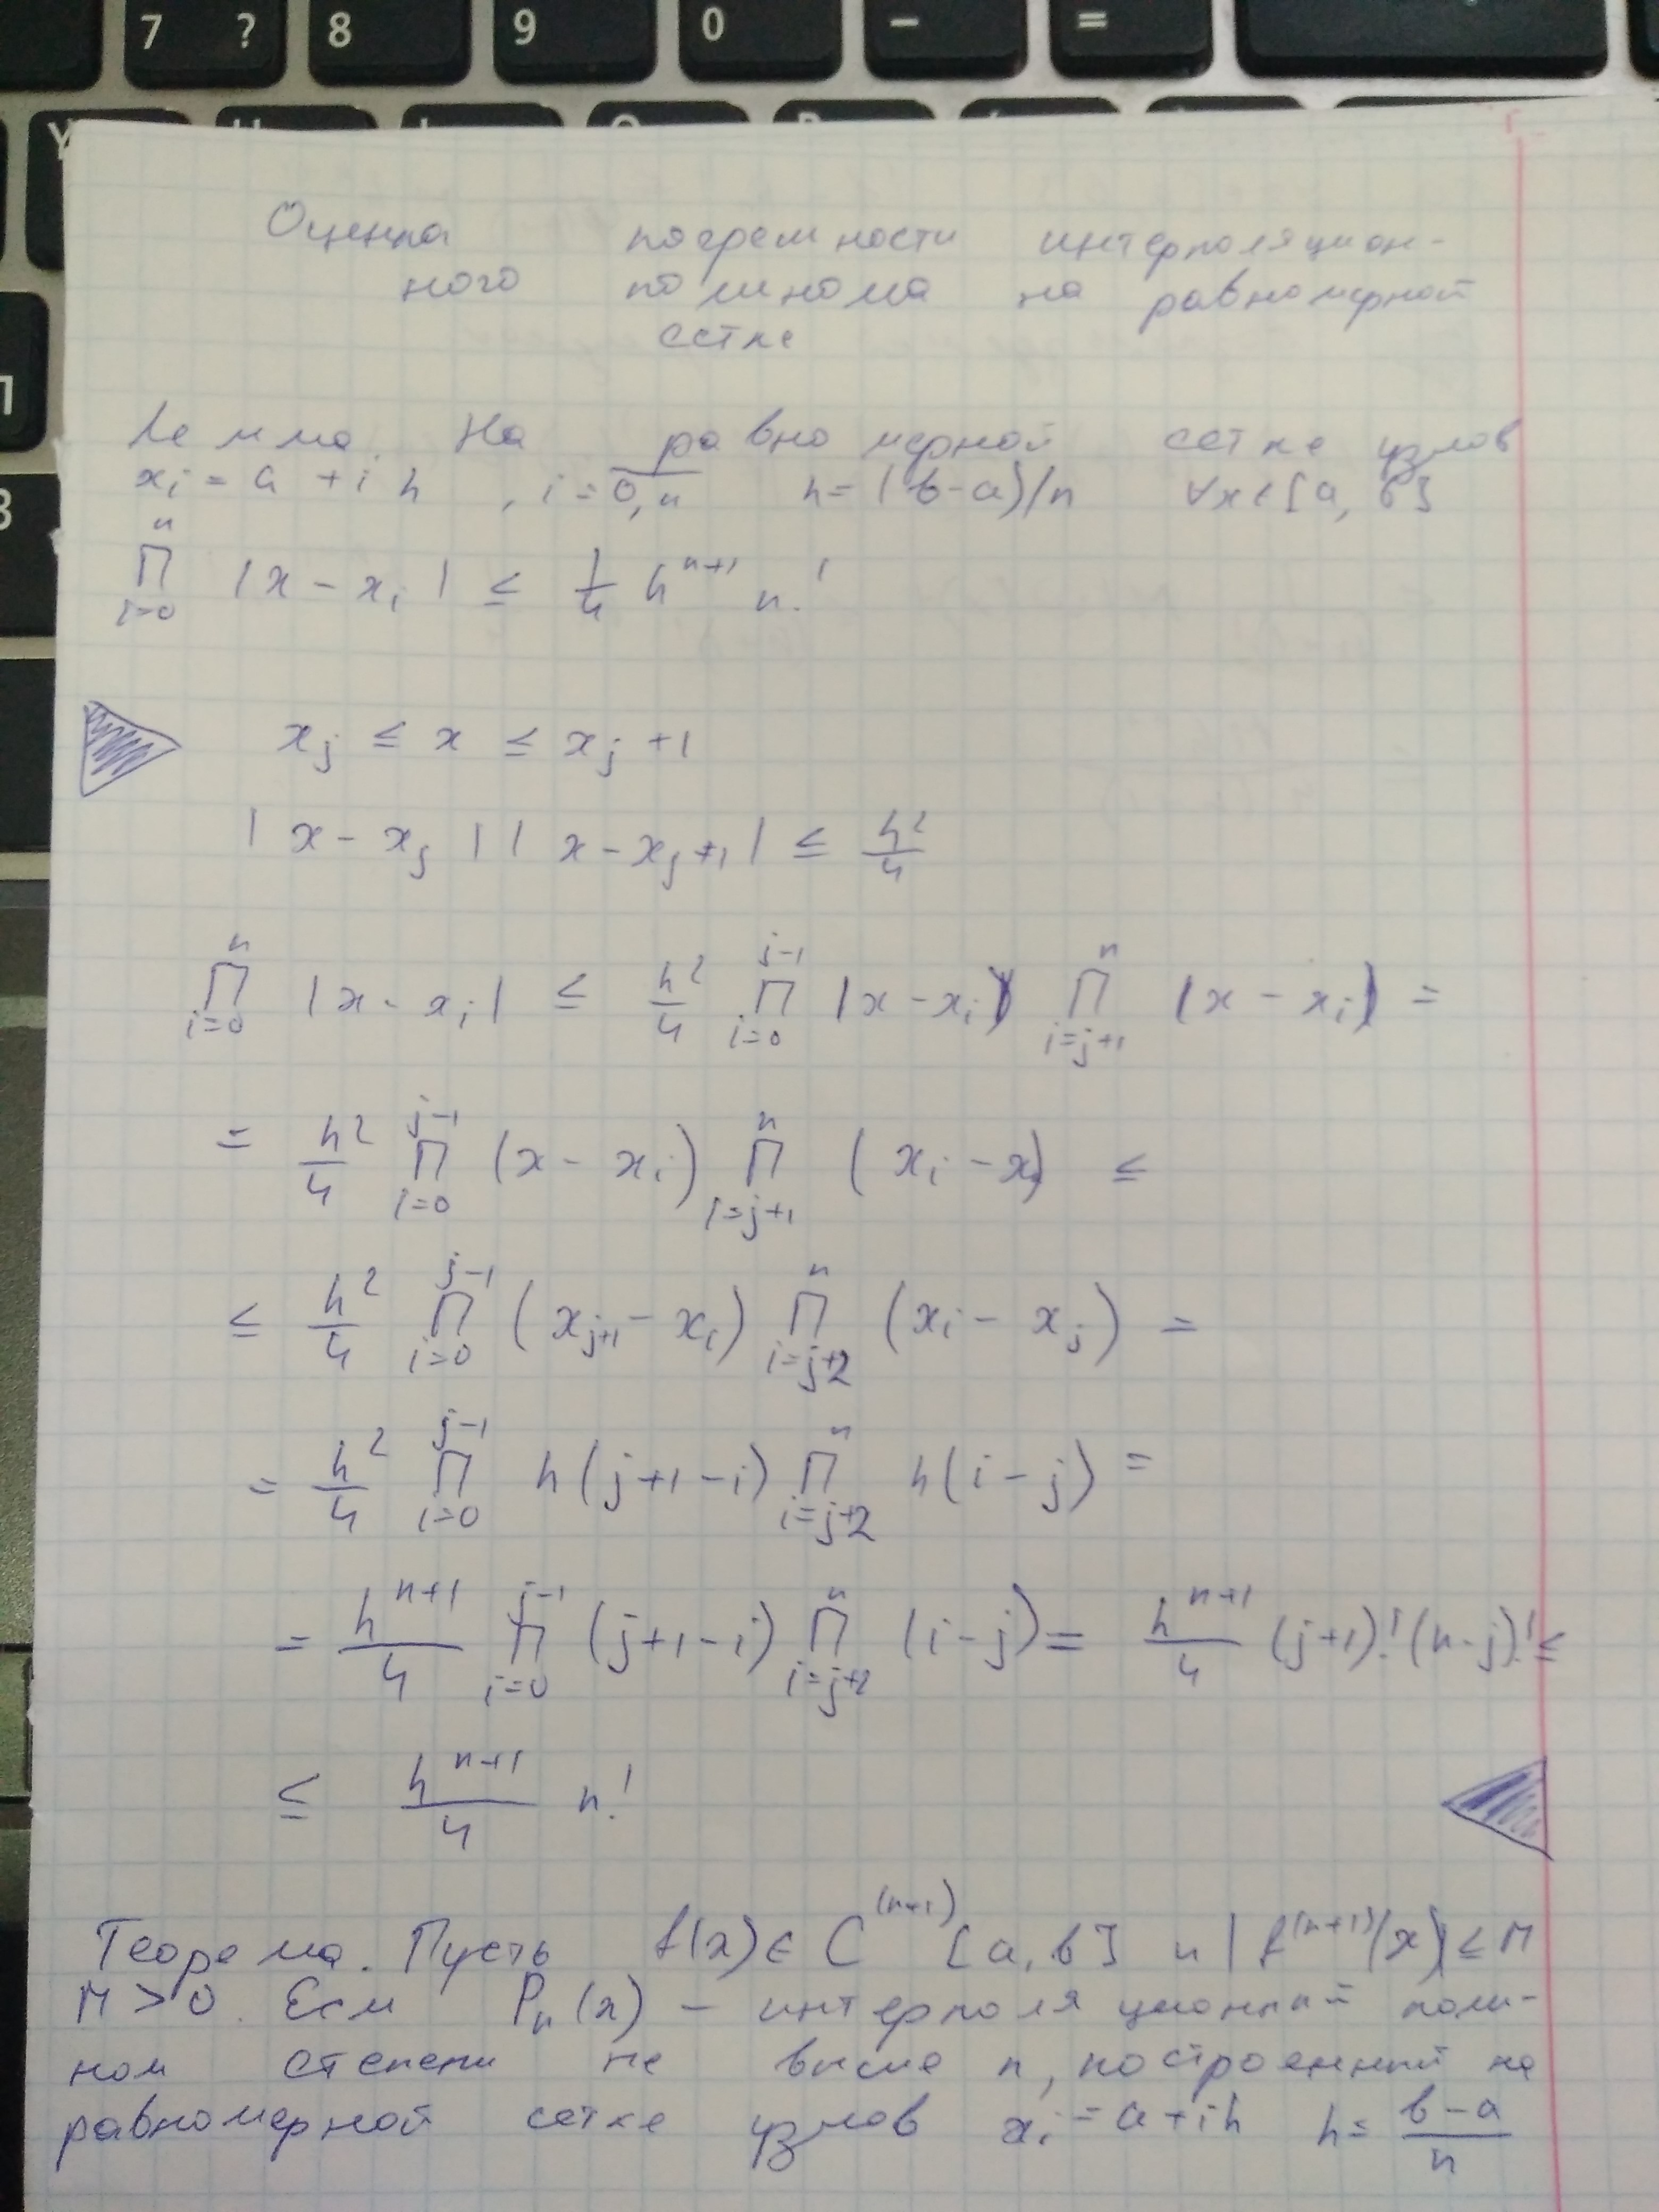 7 ? 8 9 0 - =
Y
Оценка погрешности интерполяцион-
ного полинома на равномерной
сетке
Лемма. На равномерной сетке узлов
x_i = a + i h , i = \overline{0,n} h = (b-a)/n ∀x∈[a, b]
∏_{i=0}^{n} |x - x_i| ≤ 1/4 h^{n+1} n!
x_j ≤ x ≤ x_{j+1}
|x - x_j| |x - x_{j+1}| ≤ h²/4
∏_{i=0}^{n} |x - x_i| ≤ h²/4 ∏_{i=0}^{j-1} |x - x_i| ∏_{i=j+1}^{n} |x - x_i| =
= h²/4 ∏_{i=0}^{j-1} (x - x_i) ∏_{i=j+1}^{n} (x_i - x) ≤
≤ h²/4 ∏_{i=0}^{j-1} (x_{j+1} - x_i) ∏_{i=j+2}^{n} (x_i - x_j) =
= h²/4 ∏_{i=0}^{j-1} h(j+1-i) ∏_{i=j+2}^{n} h(i-j) =
= h^{n+1}/4 ∏_{i=0}^{j-1} (j+1-i) ∏_{i=j+2}^{n} (i-j) = h^{n+1}/4 (j+1)! (n-j)! ≤
≤ h^{n+1}/4 n!
Теорема. Пусть f(x) ∈ C^{(n+1)} [a, b] и |f^{(n+1)}(x)| ≤ M
M > 0. Если P_n(x) - интерполяционный поли-
ном степени не выше n, построенный на
равномерной сетке узлов x_i = a + ih h = (b-a)/n